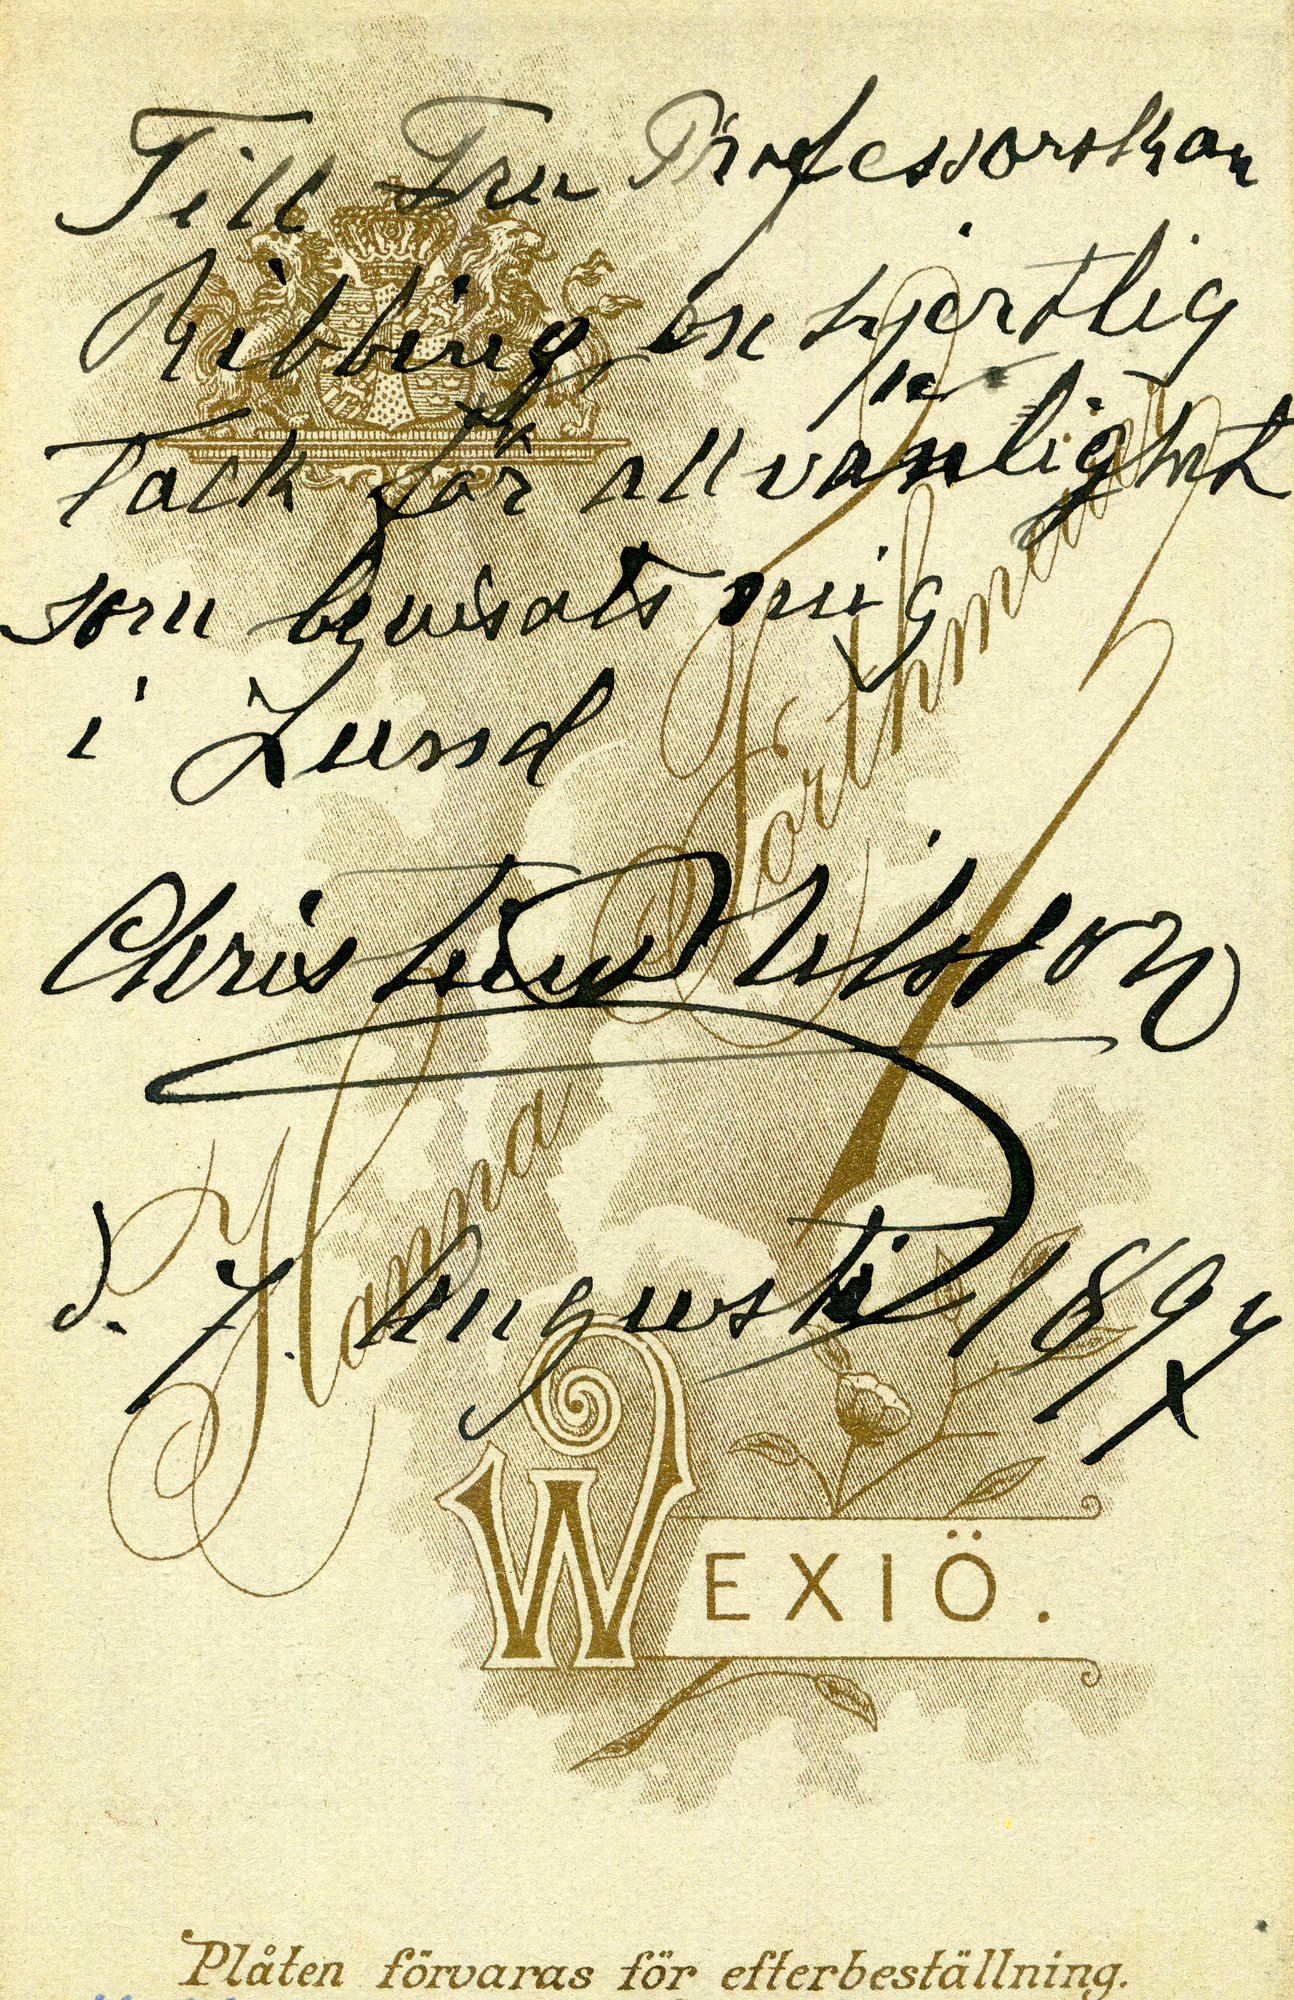 Till Fru Professorskan
Ribbing en hjertlig
Tack för all vänlighet
som bevisats mig
i Lund
Christina Nilsson
d. 7. Augusti 1894
Hanna Forthmeiier
WEXIÖ.
Plåten förvaras för efterbeställning.